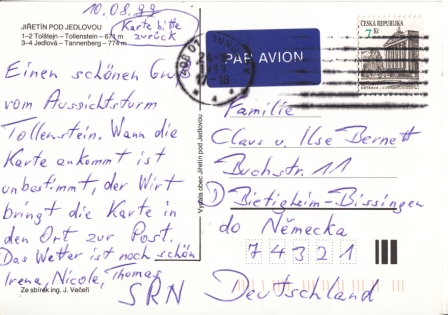 10.08.99
Karte bitte
zurück
JIŘETÍN POD JEDLOVOU
1–2 Tolštejn – Tollenstein – 671 m
3–4 Jedlová – Tannenberg – 774 m
Einen schönen Gruß
vom Aussichtsturm
Tollenstein. Wann die
Karte ankommt ist
unbestimmt, der Wirt
bringt die Karte in
den Ort zur Post.
Das Wetter ist noch schön
Irena, Nicole, Thomas
SRN
Ze sbírek ing. J. Večeři
Vydala obec Jiřetín pod Jedlovou
PAR AVION
ČESKÁ REPUBLIKA
7 Kč
Familie
Claus u. Ilse Bernett
Buchstr. 11
D Bietigheim-Bissingen
do Německa
74321
Deutschland